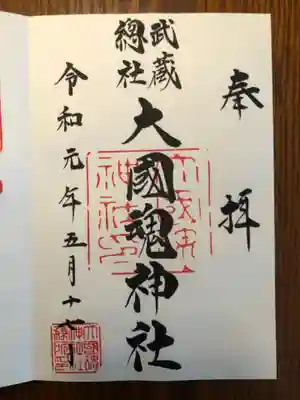 奉拝
武蔵
總社
大國魂神社
令和元年五月十七日